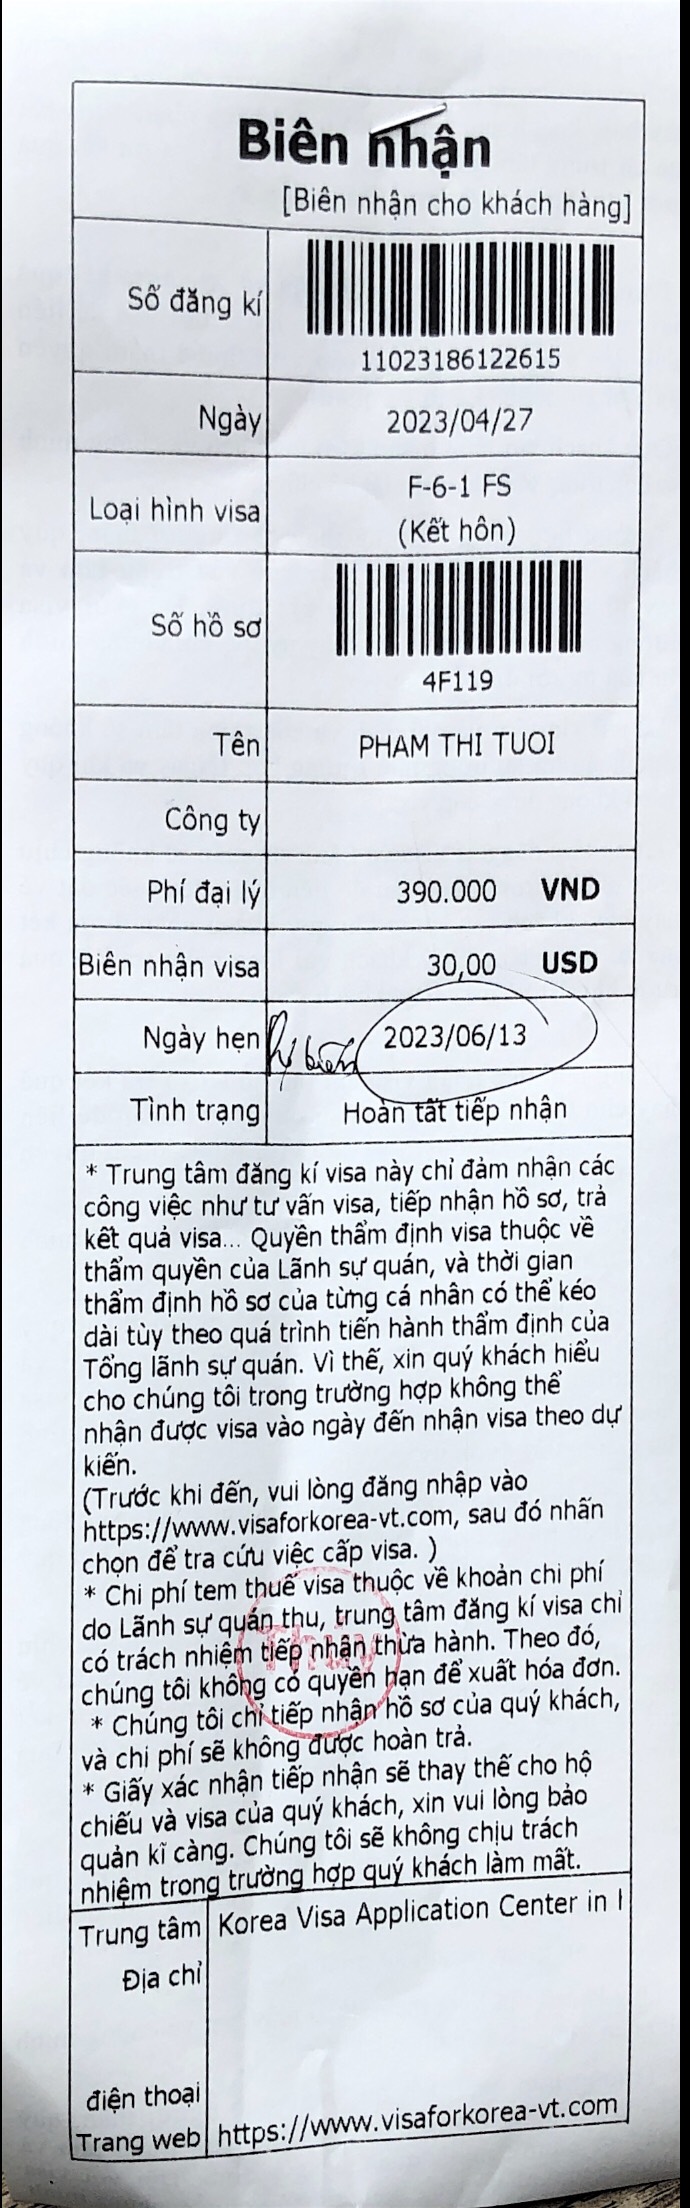 Biên nhận
[Biên nhận cho khách hàng]
Số đăng kí
11023186122615
Ngày 2023/04/27
Loại hình visa F-6-1 FS
(Kết hôn)
Số hồ sơ
4F119
Tên PHAM THI TUOI
Công ty
Phí đại lý 390.000 VND
Biên nhận visa 30,00 USD
Ngày hẹn dự kiến 2023/06/13
Tình trạng Hoàn tất tiếp nhận
* Trung tâm đăng kí visa này chỉ đảm nhận các
công việc như tư vấn visa, tiếp nhận hồ sơ, trả
kết quả visa... Quyền thẩm định visa thuộc về
thẩm quyền của Lãnh sự quán, và thời gian
thẩm định hồ sơ của từng cá nhân có thể kéo
dài tùy theo quá trình tiến hành thẩm định của
Tổng lãnh sự quán. Vì thế, xin quý khách hiểu
cho chúng tôi trong trường hợp không thể
nhận được visa vào ngày đến nhận visa theo dự
kiến.
(Trước khi đến, vui lòng đăng nhập vào
https://www.visaforkorea-vt.com, sau đó nhấn
chọn để tra cứu việc cấp visa. )
* Chi phí tem thuế visa thuộc về khoản chi phí
do Lãnh sự quán thu, trung tâm đăng kí visa chỉ
có trách nhiệm tiếp nhận thừa hành. Theo đó,
chúng tôi không có quyền hạn để xuất hóa đơn.
* Chúng tôi chỉ tiếp nhận hồ sơ của quý khách,
và chi phí sẽ không được hoàn trả.
* Giấy xác nhận tiếp nhận sẽ thay thế cho hộ
chiếu và visa của quý khách, xin vui lòng bảo
quản kĩ càng. Chúng tôi sẽ không chịu trách
nhiệm trong trường hợp quý khách làm mất.
Thủy
Trung tâm Korea Visa Application Center in
Địa chỉ
điện thoại
Trang web https://www.visaforkorea-vt.com